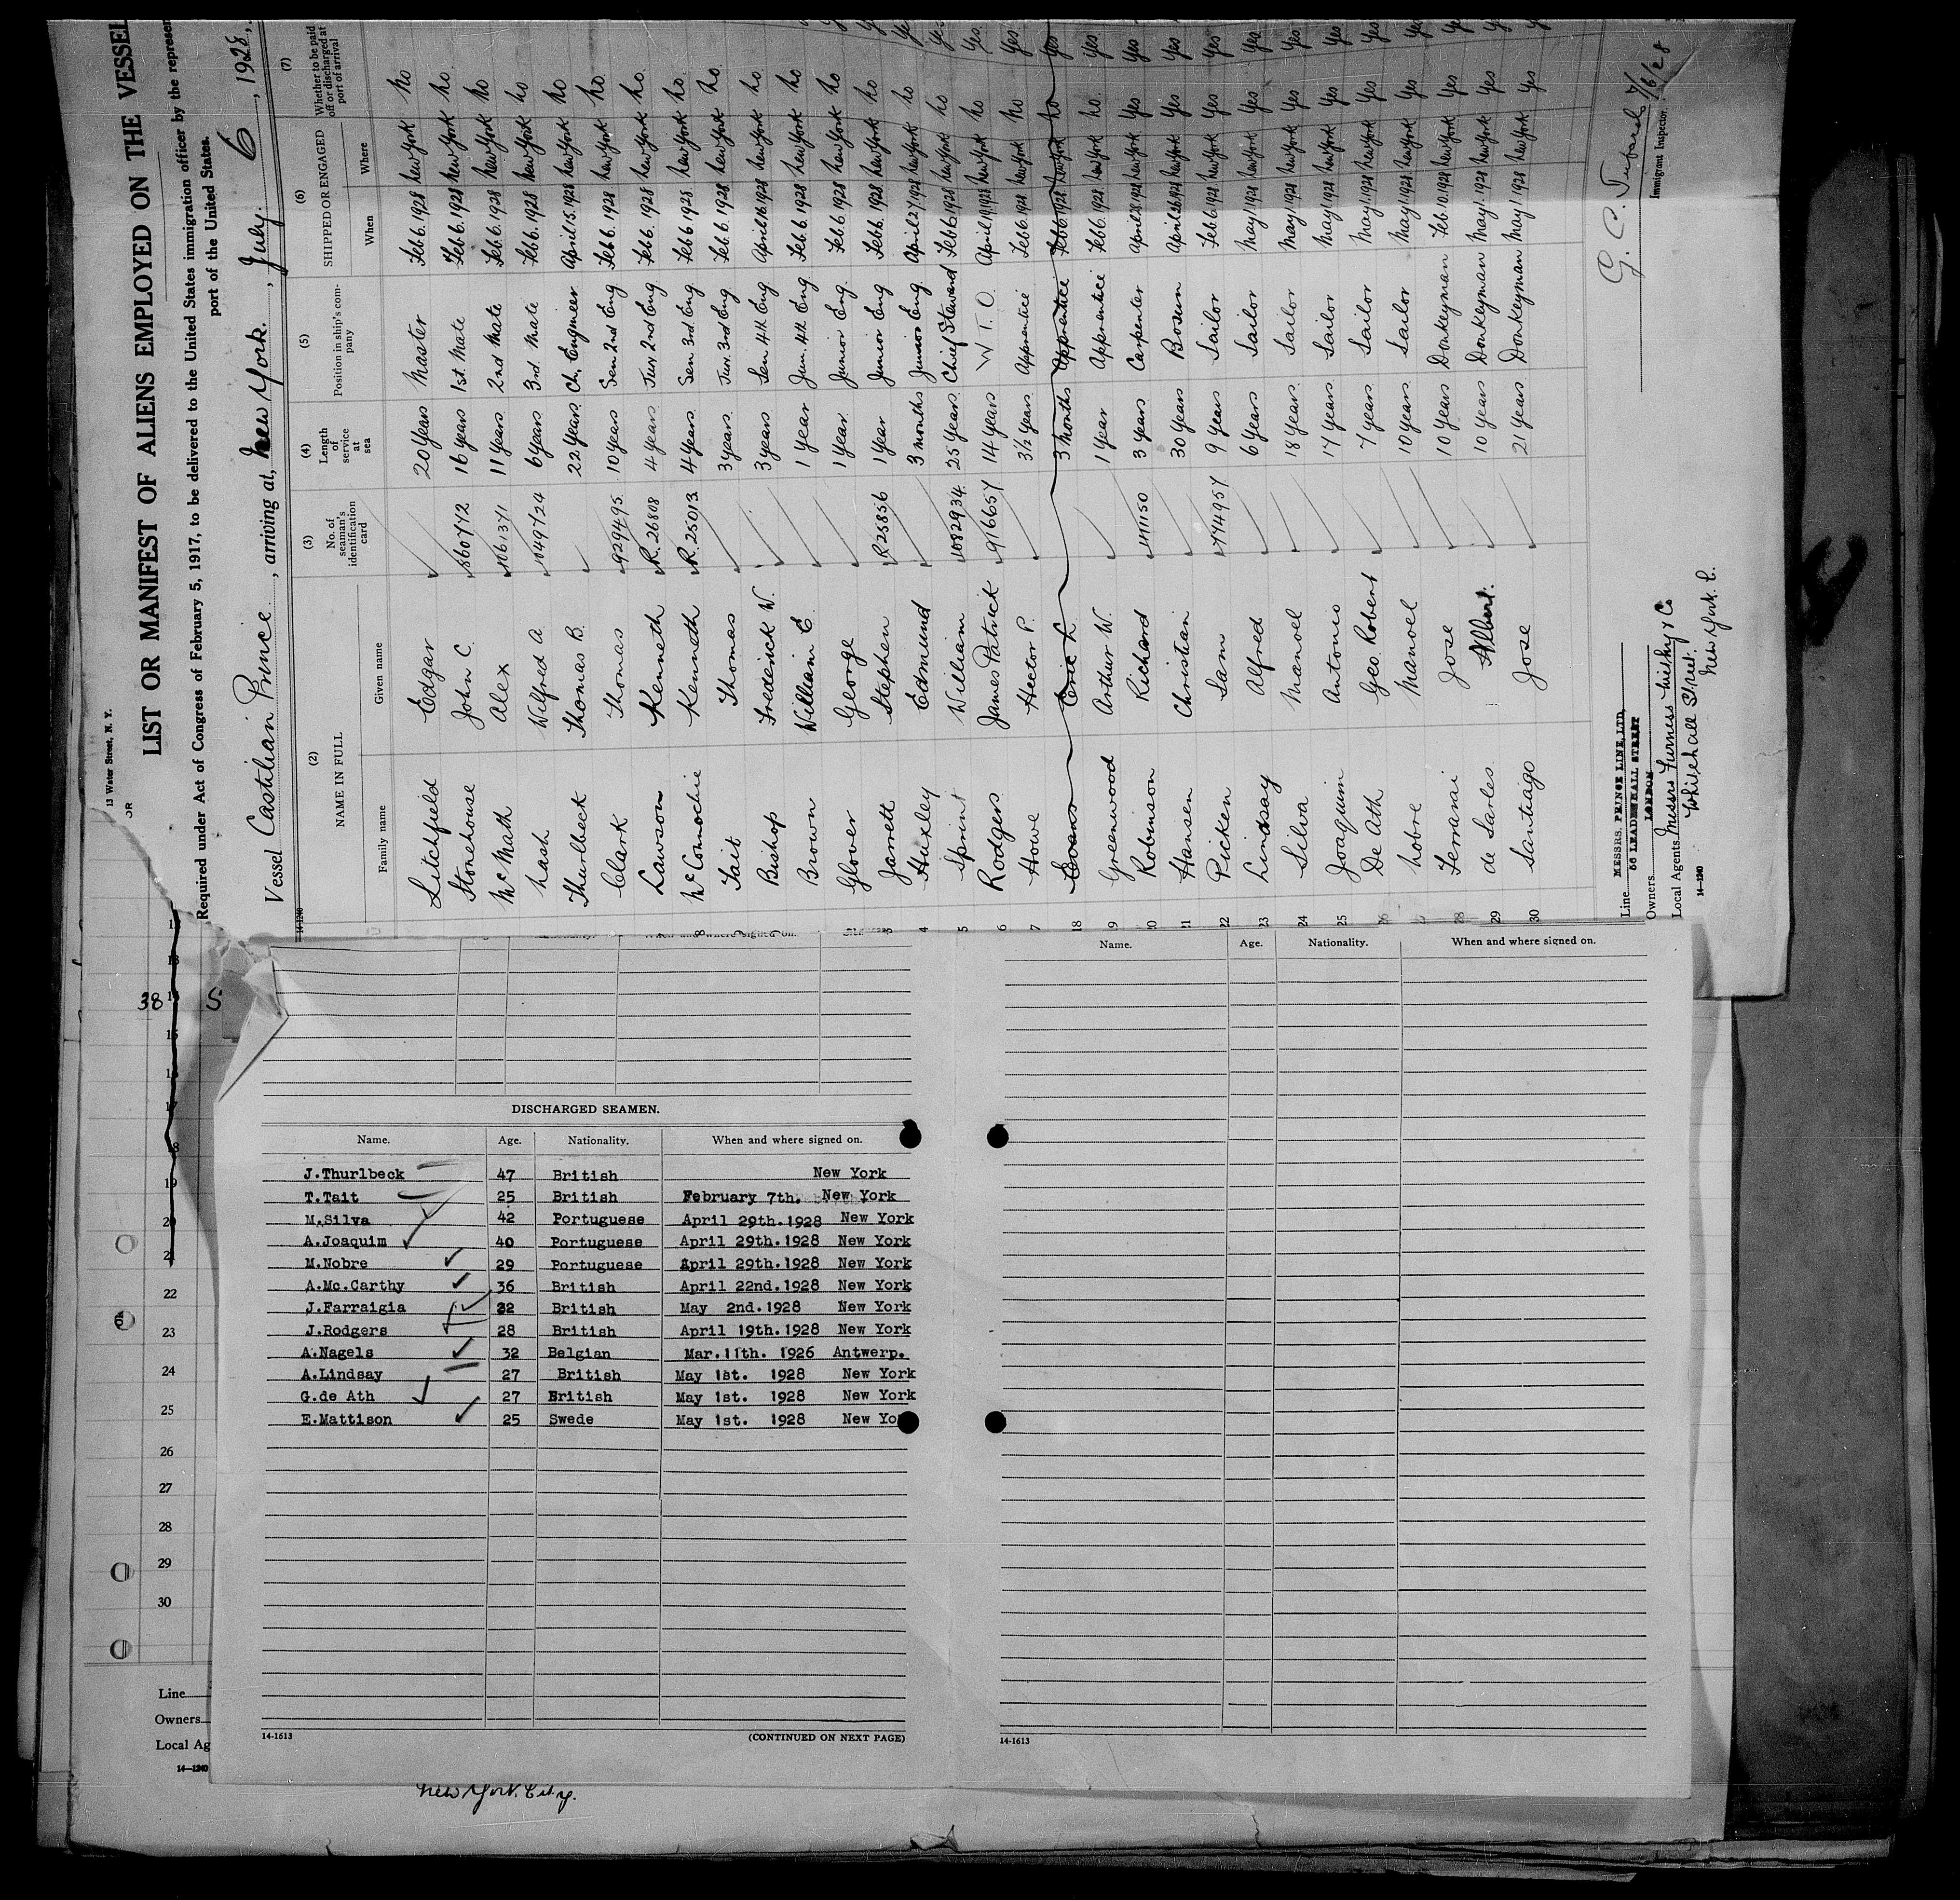 13 Water Street, N. Y.
OR
LIST OR MANIFEST OF ALIENS EMPLOYED ON THE VESSEL
Required under Act of Congress of February 5, 1917, to be delivered to the United States immigration officer by the represen
port of the United States.
Vessel Castilian Prince, arriving at, New York., July. 6, 1928,
14-1240
(2) (3) (4) (5) (6) (7)
NAME IN FULL No. of seaman's identification card Length of service at sea Position in ship's company SHIPPED OR ENGAGED Whether to be paid off or discharged at port of arrival
Family name Given name When Where
Litchfield Edgar 20 Years Master Feb 6. 1928 New York No
Stonehouse John C. 860772 16 years 1st. Mate Feb 6. 1928 New York No.
McMath Alex 1061371 11 years 2nd Mate Feb 6. 1928 New York No
Nash Wilfred A. 1049724 6 years 3rd. Mate Feb 6. 1928 New York No
Thurlbeck Thomas B. 22 Years Ch. Engineer April 15. 1928 New York No
Clark Thomas 929495 10 years Sen 2nd Eng Feb 6. 1928 New York No.
Lawson Kenneth R. 26808 4 years Jun 2nd Eng Feb 6. 1928 New York No.
McConnochie Kenneth R. 25013 4 years Sen 3rd Eng Feb 6 1928 New York No.
Tait Thomas 3 years Jun. 3rd Eng. Feb 6. 1928 New York No.
Bishop Frederick W. 3 years Sen 4th Eng April 16. 1928 New York No
Brown William E. 1 year Jun. 4th Eng Feb 6. 1928 New York No
Glover George 1 year Junior Eng. Feb 6. 1928 New York No
Jarrett Stephen R 25856 1 year Junior Eng Feb 6. 1928 New York No
4 Huxley Edmund 3 months Junior Eng April 27. 1928 New York No
5 Spount William 1082934 25 Years Chief Steward Feb 6. 1928 New York No
6 Rodgers James Patrick 916657 14 years W T O. April 19. 1928 New York No
7 Howe Hector P. 3½ Years Apprentice Feb 6. 1928 New York No Yes
18 Evans Eric L. 3 months Apprentice Feb 6. 1928 New York No Yes
9 Greenwood Arthur W. 1 Year Apprentice Feb 6. 1928 New York No. Yes
20 Robinson Richard 411150 3 years Carpenter April 28. 1928 New York Yes Yes
21 Hansen Christian 30 Years Bosun April 26. 1928 New York Yes Yes
22 Picken Sam 774957 9 Years Sailor Feb 6. 1928 New York Yes Yes
23 Lindsay Alfred 6 Years Sailor May 1. 1928 New York Yes Yes
24 Silva Manoel 18 Years. Sailor May 1. 1928 New York Yes Yes
25 Joaquim Antonio 17 years Sailor May 1. 1928 New York Yes Yes
26 De Ath Geo. Robert 7 years Sailor May 1. 1928 New York Yes Yes
27 Nobre Manoel 10 years Sailor May 1. 1928 New York Yes Yes
28 Ferrarai Jose 10 Years Donkeyman Feb. 10. 1928 New York Yes
29 de Sarles Albert. 10 years Donkeyman May 1. 1928 New York Yes
30 Santiago Jose 21 Years Donkeyman May 1. 1928 New York Yes
7/6/28
Immigrant Inspector.
Line MESSRS. PRINCE LINE, LTD.
56 LEADENHALL STREET
Owners LONDON
Local Agents Messrs Furness Withy & Co
Whitehall Street.
New York. C.
14-1240
38 S
Name. Age. Nationality. When and where signed on.
DISCHARGED SEAMEN.
Name. Age. Nationality. When and where signed on.
J.Thurlbeck 47 British New York
T.Tait 25 British February 7th. New York
M.Silva 42 Portuguese April 29th.1928 New York
A.Joaquim 40 Portuguese April 29th.1928 New York
M.Nobre 29 Portuguese April 29th.1928 New York
A.Mc.Carthy 36 British April 22nd.1928 New York
J.Farraigia 32 British May 2nd.1928 New York
J.Rodgers 28 British April 19th.1928 New York
A.Nagels 32 Belgian Mar.11th. 1926 Antwerp.
A.Lindsay 27 British May 1st. 1928 New York
G.de Ath 27 British May 1st. 1928 New York
E.Mattison 25 Swede May 1st. 1928 New Yo
14-1613 (CONTINUED ON NEXT PAGE) 14-1613
13
14
15
16
17
18
19
20
21
22
23
24
25
26
27
28
29
30
Line
Owners
Local Ag
14-1240
New York City.